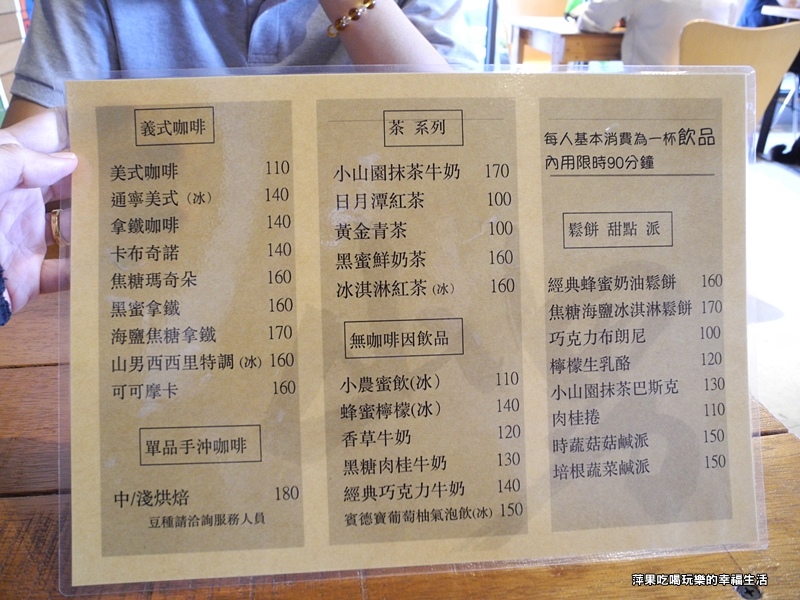 義式咖啡
美式咖啡 110
通寧美式(冰) 140
拿鐵咖啡 140
卡布奇諾 140
焦糖瑪奇朵 160
黑蜜拿鐵 160
海鹽焦糖拿鐵 170
山男西西里特調(冰) 160
可可摩卡 160
單品手沖咖啡
中/淺烘焙 180
豆種請洽詢服務人員
茶 系列
小山園抹茶牛奶 170
日月潭紅茶 100
黃金青茶 100
黑蜜鮮奶茶 160
冰淇淋紅茶(冰) 160
無咖啡因飲品
小農蜜飲(冰) 110
蜂蜜檸檬(冰) 140
香草牛奶 120
黑糖肉桂牛奶 130
經典巧克力牛奶 140
賓德寶葡萄柚氣泡飲(冰) 150
每人基本消費為一杯飲品
內用限時90分鐘
鬆餅 甜點 派
經典蜂蜜奶油鬆餅 160
焦糖海鹽冰淇淋鬆餅 170
巧克力布朗尼 100
檸檬生乳酪 120
小山園抹茶巴斯克 130
肉桂捲 110
時蔬菇菇鹹派 150
培根蔬菜鹹派 150
萍果吃喝玩樂的幸福生活